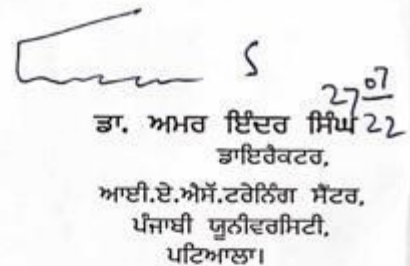 27 07
22
ਡਾ. ਅਮਰ ਇੰਦਰ ਸਿੰਘ
ਡਾਇਰੈਕਟਰ,
ਆਈ.ਏ.ਐਸੱ.ਟਰੇਨਿੰਗ ਸੈਂਟਰ,
ਪੰਜਾਬੀ ਯੂਨੀਵਰਸਿਟੀ,
ਪਟਿਆਲਾ।